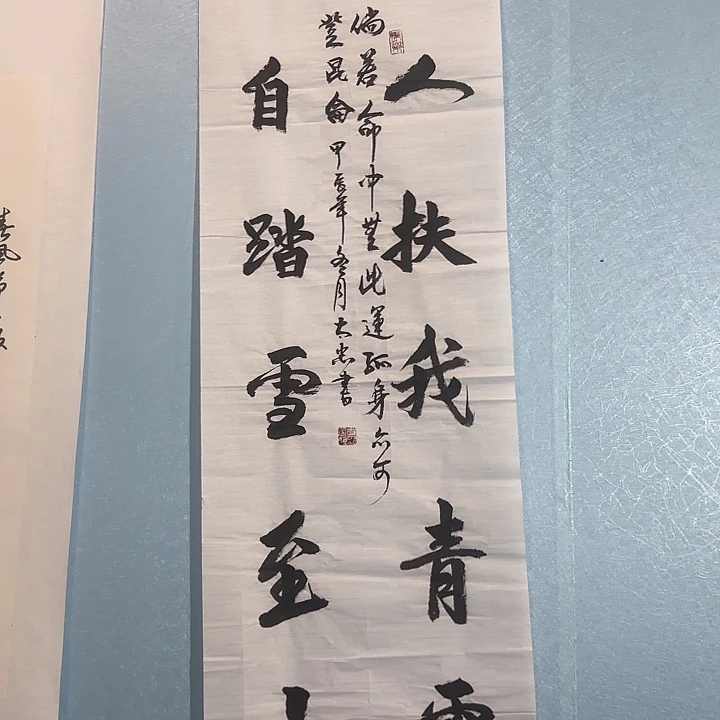 人扶我青
倘若命中無此運孤身亦可
登昆侖甲辰年冬月大忠書
自踏雪至
春風